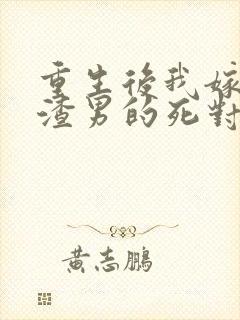 重生後我嫁
渣男的死對
黃志鵬